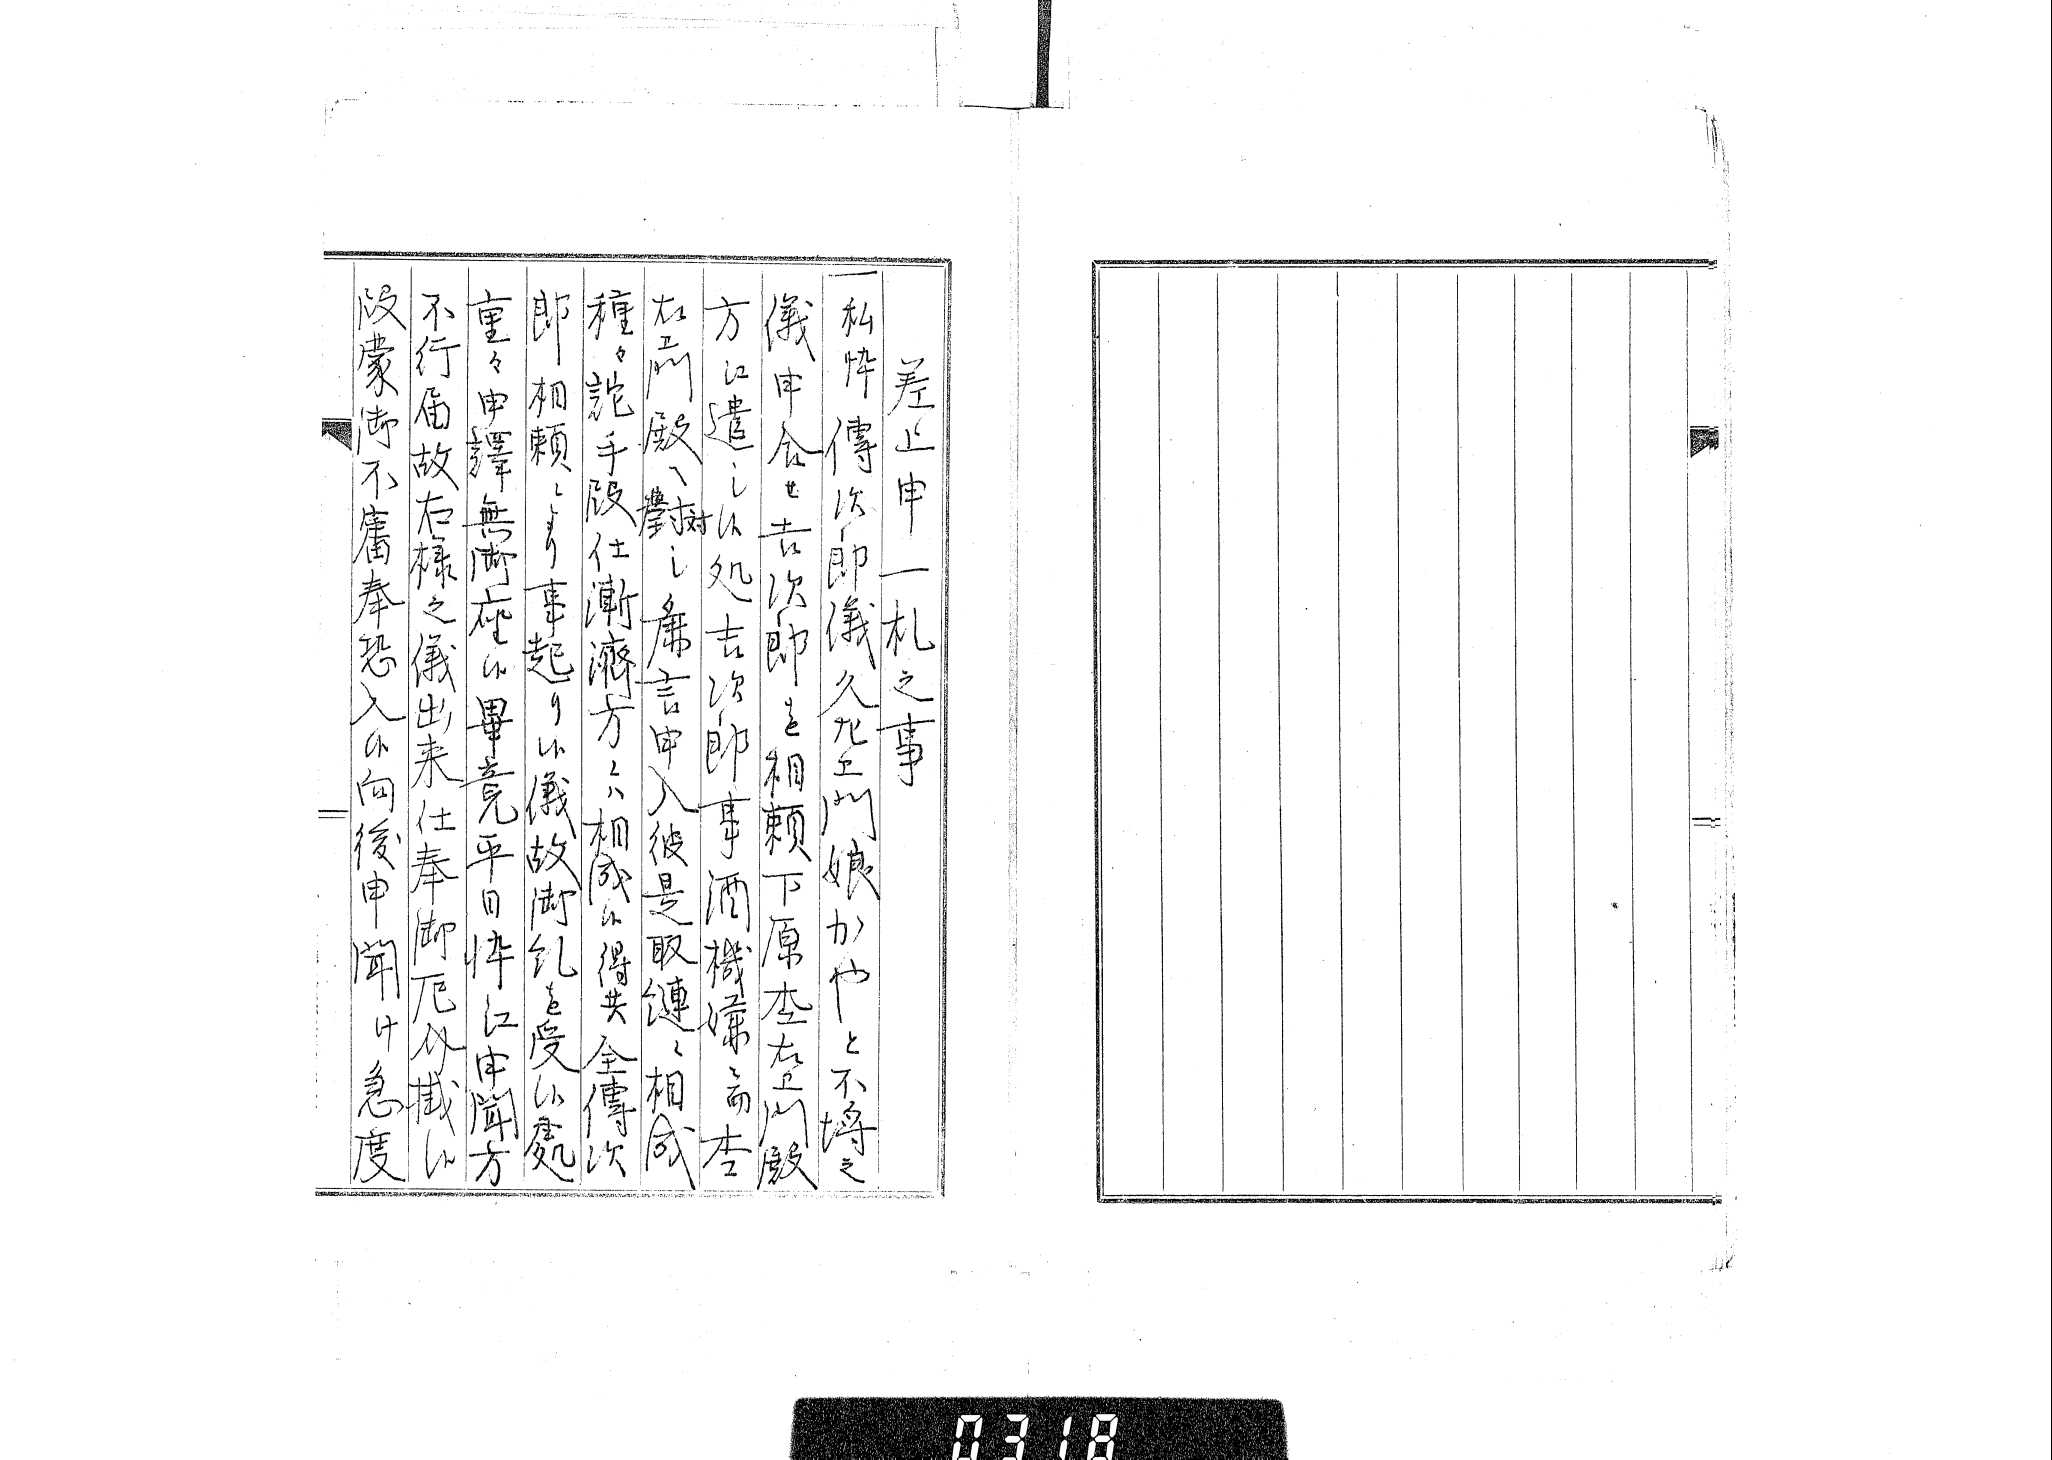 差上申一札之事
一私忰傳次郎儀久左卫門娘かやと不埒之
儀申合せ吉次郎を相頼下原杢右卫門殿
方江遣し候処吉次郎事酒機嫌ニ而杢
右卫門殿へ對し麁言申入彼是取縺ニ相成
種々詫手段仕漸濟方ニハ相成候得共全傳次
郎相頼ミより事起り候儀故御糺を受候處
重々申譯無御座候畢竟平日忰江申聞方
不行届故右様之儀出来仕奉御厄介掛候
段蒙御不審奉恐入候向後申聞ケ急度
0318